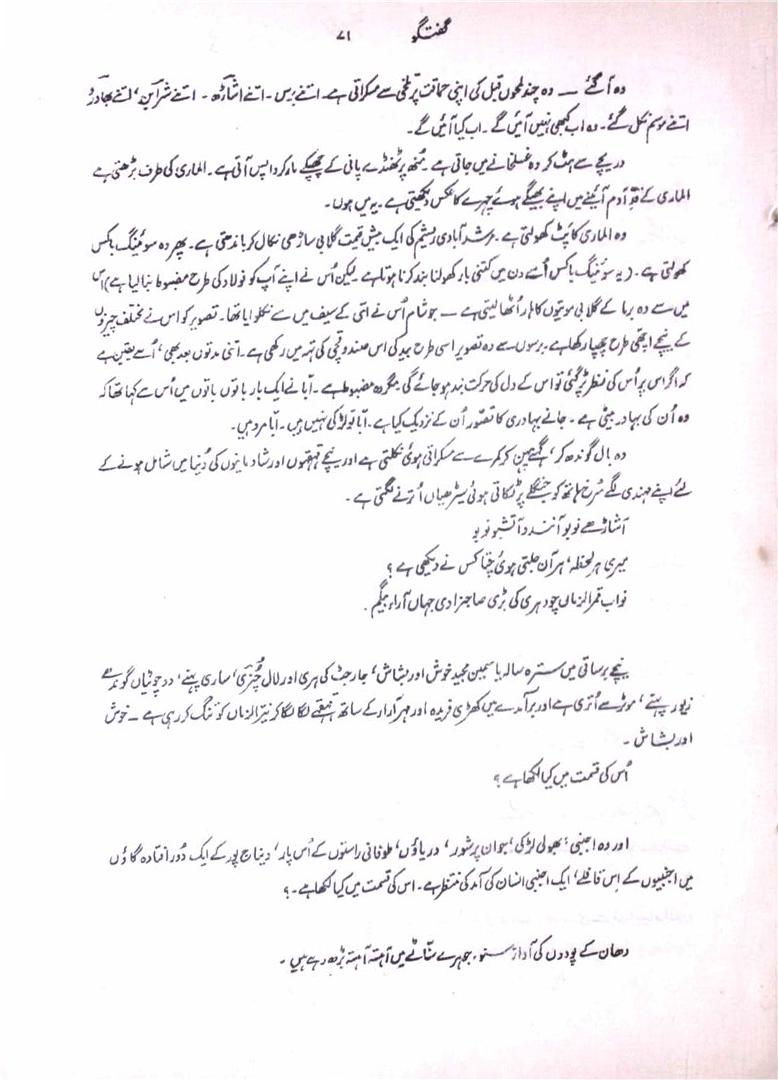 گفتگو ۷۱
وہ آ گئے — وہ چند لمحوں قبل کی اپنی حماقت پر تلخی سے مسکراتی ہے۔ اتنے برس۔ اتنے اشاڑھ۔ اتنے شرابن، اتنے بھادرؔ
اتنے موسم نکل گئے۔ وہ اب کبھی نہیں آئیں گے۔ اب کیا آئیں گے۔
دریچے سے ہٹ کر وہ غسلخانے میں جاتی ہے۔ مُنھ پر ٹھنڈے پانی کے چھپکے مار کر واپس آتی ہے۔ الماری کی طرف بڑھتی ہے
الماری کے قدِّ آدم آئینے میں اپنے بھیگے ہوئے چہرے کا عکس دیکھتی ہے۔ یہ میں ہوں۔
وہ الماری کا پٹ کھولتی ہے۔ مرشد آبادی ریشم کی ایک بیش قیمت گلابی ساڑھی نکال کر باندھتی ہے۔ پھر وہ سوئینگ باکس
کھولتی ہے۔ (یہ سوئینگ باکس اُسے دن میں کتنی بار کھولنا بند کرنا ہوتا ہے لیکن اُس نے اپنے آپ کو فولاد کی طرح مضبوط بنا لیا ہے) اس
میں سے وہ برما کے گلابی موتیوں کا ہار اُٹھا لیتی ہے — جو شام اُس نے امّی کے سیف میں سے نکلوایا تھا۔ تصویر کو اس نے مختلف چیزوں
کے نیچے اچھی طرح چھپا رکھا ہے برسوں سے وہ تصویر اسی طرح بید کی اس صندوقچی کی تہہ میں رکھی ہے۔ اتنی مدتوں بعد بھی، اُسے یقین ہے
کہ اگر اس پر اُس کی نظر پڑ گئی تو اس کے دل کی حرکت بند ہو جائے گی مگر وہ مضبوط ہے۔ ابّا نے ایک بار باتوں باتوں میں اُس سے کہا تھا کہ
وہ اُن کی بہادر بیٹی ہے۔ جانے بہادری کا تصوّر اُن کے نزدیک کیا ہے۔ ابّا تو لڑکی نہیں ہیں۔ ابّا مرد ہیں۔
وہ بال گوندھ کر، گہنے پہن کر کمرے سے مسکراتی ہوئی نکلتی ہے اور نیچے قہقہوں اور شادمانیوں کی دُنیا میں شامل ہونے کے
لئے اپنے مہندی لگے سُرخ ہاتھ کو جنگلے پر ٹکاتی ہوئی سیڑھیاں اُترنے لگتی ہے۔
آشاڑھے نوبو آنند و آتشبو نوبو
میری ہر لحظہ، ہر آن جلتی ہوئی چتا کس نے دیکھی ہے؟
نواب قمرالزماں چودھری کی بڑی صاحبزادی جہاں آراء بیگم۔
نیچے برساتی میں سترہ سالہ یاسمین مجید خوش اور بشاش، جارجٹ کی ہری اور لال چُنزی، ساری پہنے، دو چوٹیاں گوندھے
زیور پہنے، موٹر سے اُتری ہے اور برآمدے میں کھڑی فریدہ اور مہر آرا کے ساتھ قہقہے لگا لگا کر نیّر الزماں کو تنگ کر رہی ہے — خوش
اور بشاش۔
اُس کی قسمت میں کیا لکھا ہے؟
اور وہ اجنبی، بھولی لڑکی، جو ان پُرشور، دریاؤں، طوفانی راستوں کے اُس پار، دیناج پور کے ایک دُور افتادہ گاؤں
میں اجنبیوں کے اس قافلے، ایک اجنبی انسان کی آمد کی منتظر ہے۔ اس کی قسمت میں کیا لکھا ہے۔؟
دھان کے پودوں کی آواز سنو، جو ہرے سنّاٹے میں آہستہ آہستہ بڑھ رہے ہیں۔